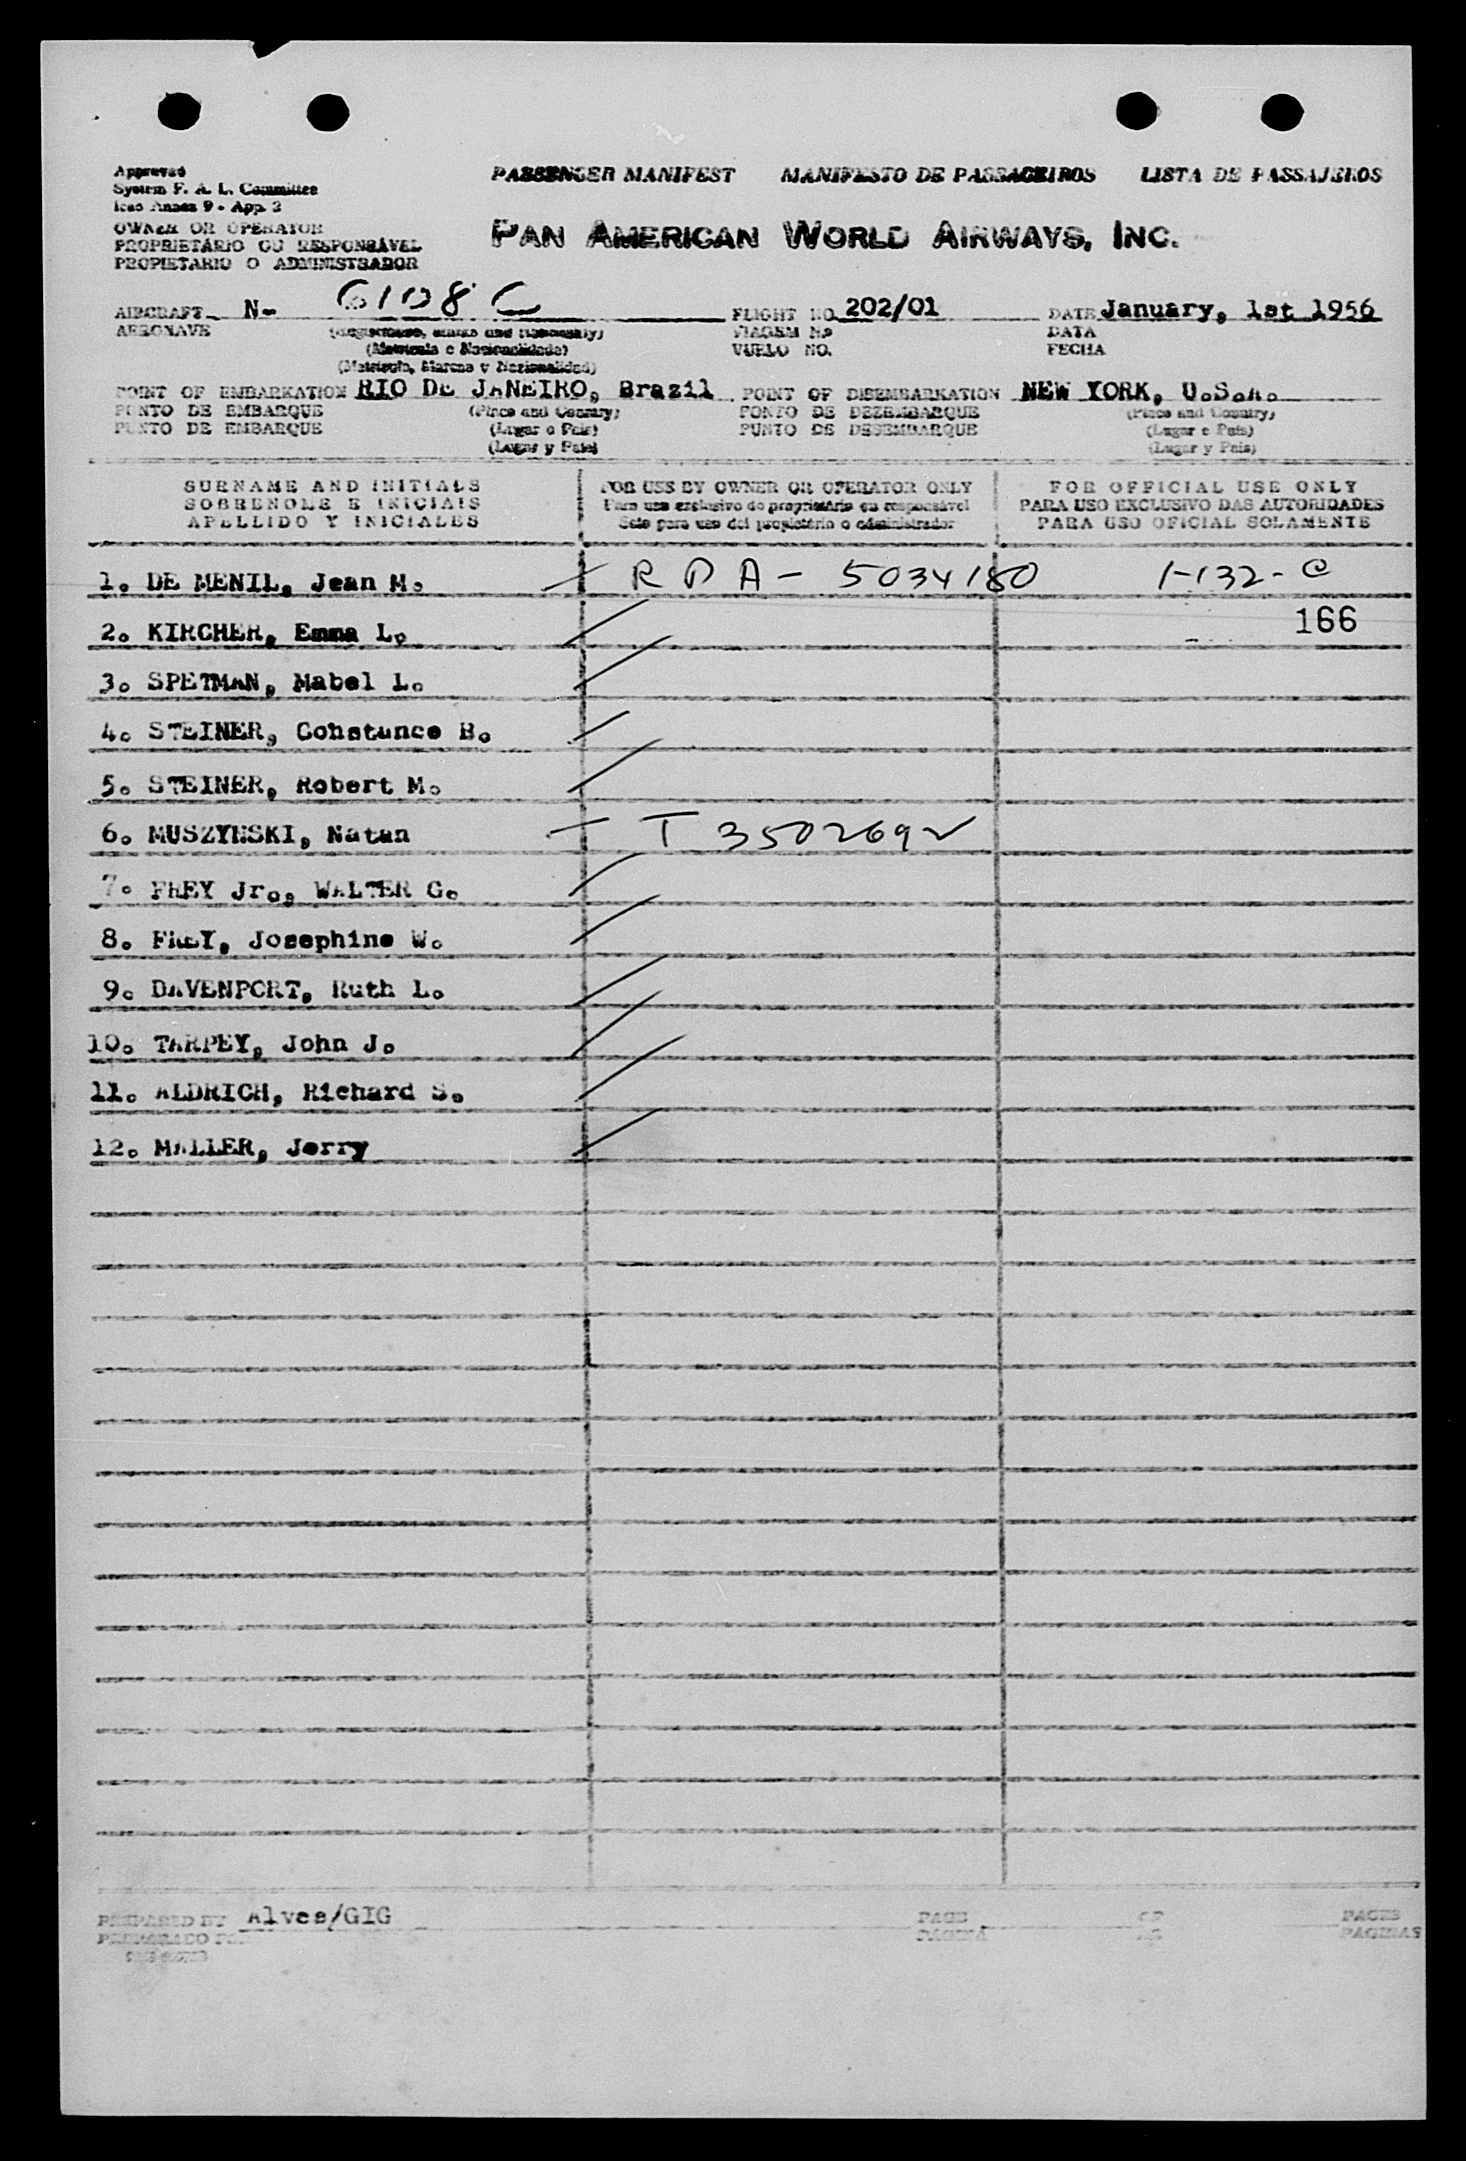 Approved
System F. A. L. Committee
Icao Annex 9 - App. 3
PASSENGER MANIFEST MANIFESTO DE PASSAGEIROS LISTA DE PASSAJEROS
OWNER OR OPERATOR
PROPRIETÁRIO OU RESPONSÁVEL
PROPIETARIO O ADMINISTRADOR
PAN AMERICAN WORLD AIRWAYS, INC.
AIRCRAFT N- 6108 C FLIGHT NO. 202/01 DATE January, 1st 1956
AERONAVE (Registration, marks and Nationality) VIAGEM N.º DATA
(Matrícula e Nacionalidade) VUELO NO. FECHA
(Matrícula, Marcas y Nacionalidad)
POINT OF EMBARKATION RIO DE JANEIRO, Brazil POINT OF DISEMBARKATION NEW YORK, U.S.A.
PONTO DE EMBARQUE (Place and Country) PONTO DE DEZEMBARQUE (Place and Country)
PUNTO DE EMBARQUE (Lugar e País) PUNTO DE DESEMBARQUE (Lugar e País)
(Lugar y País) (Lugar y País)
SURNAME AND INITIALS FOR USE BY OWNER OR OPERATOR ONLY FOR OFFICIAL USE ONLY
SOBRENOME E INICIAIS Para uso exclusivo do proprietário ou responsável PARA USO EXCLUSIVO DAS AUTORIDADES
APELLIDO Y INICIALES Solo para uso del propietário o administrador PARA USO OFICIAL SOLAMENTE
1. DE MENIL, Jean M. R D A - 5034180 1-132-C
2. KIRCHER, Emma L. 166
3. SPETMAN, Mabel L.
4. STEINER, Constance B.
5. STEINER, Robert M.
6. MUSZYNSKI, Natan T 3502692
7. FREY Jr., WALTER G.
8. FREY, Josephine W.
9. DAVENPORT, Ruth L.
10. TARPEY, John J.
11. ALDRICH, Richard S.
12. MALLER, Jerry
PREPARED BY Alves/GIG PAGE OF PAGES
PREPARADO PÁGINA PÁGINAS